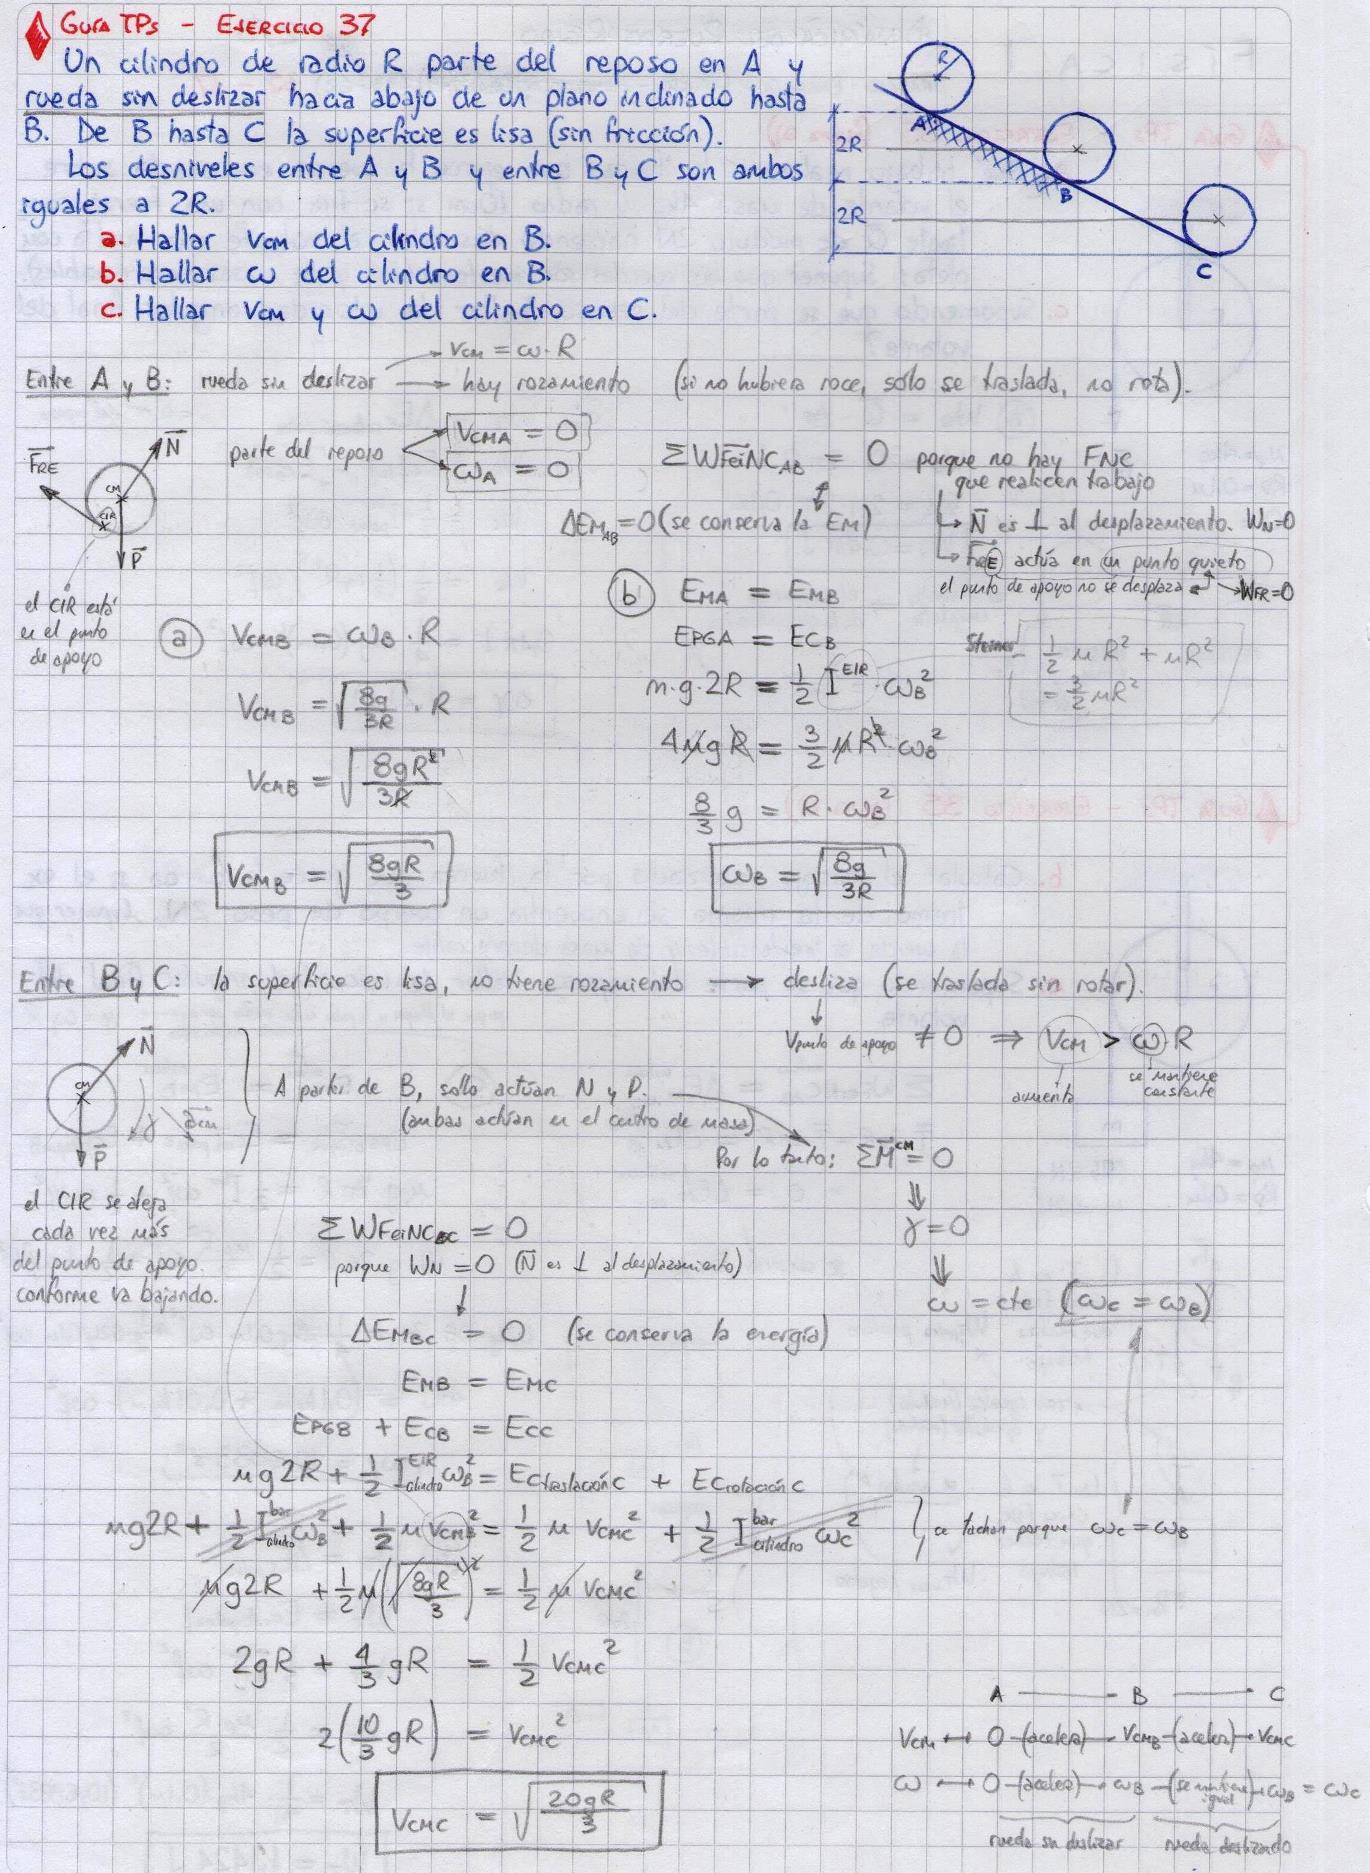 Guía TPs - Ejercicio 37
Un cilindro de radio R parte del reposo en A y
rueda sin deslizar hacia abajo de un plano inclinado hasta
B. De B hasta C la superficie es lisa (sin fricción).
Los desniveles entre A y B y entre B y C son ambos
iguales a 2R.
a. Hallar Vcm del cilindro en B.
b. Hallar ω del cilindro en B.
c. Hallar Vcm y ω del cilindro en C.
R
A
2R
B
2R
C
Vcm = ω·R
Entre A y B: rueda sin deslizar → hay rozamiento (si no hubiera roce, sólo se traslada, no rota).
N
FRE
CM
CIR
P
el CIR está
en el punto
de apoyo
parte del reposo
VCMA = 0
ωA = 0
ΣWFeiNCAB = 0 porque no hay FNC
que realicen trabajo
ΔEMAB = 0 (se conserva la EM)
→ N es ⊥ al desplazamiento. WN=0
→ FRE actúa en un punto quieto
el punto de apoyo no se desplaza → WFR=0
a
VCMB = ωB · R
VCMB = √(8g/3R) · R
VCMB = √(8gR²/3R)
VCMB = √(8gR/3)
b
EMA = EMB
EPGA = ECB
m·g·2R = 1/2 I^EIR · ωB²
Steiner
1/2 MR² + MR²
= 3/2 MR²
4MgR = 3/2 MR² · ωB²
8/3 g = R · ωB²
ωB = √(8g/3R)
Entre B y C: la superficie es lisa, no tiene rozamiento → desliza (se traslada sin rotar).
Vpunto de apoyo ≠ 0 ⇒ Vcm > ω·R
aumenta
se mantiene
constante
N
CM
γ
acm
P
A partir de B, sólo actúan N y P.
(ambas actúan en el centro de masa)
Por lo tanto: ΣM^CM = 0
⇓
γ = 0
⇓
ω = cte (ωC = ωB)
el CIR se aleja
cada vez más
del punto de apoyo
conforme va bajando.
ΣWFeiNCBC = 0
porque WN = 0 (N es ⊥ al desplazamiento)
↓
ΔEMBC = 0 (se conserva la energía)
EMB = EMC
EPGB + ECB = ECC
Mg2R + 1/2 I^EIR cilindro ωB² = ECtraslación C + ECrotación C
Mg2R + 1/2 I^bar cilindro ωB² + 1/2 M VCMB² = 1/2 M VCMC² + 1/2 I^bar cilindro ωC²
se tachan porque ωC = ωB
Mg2R + 1/2 M (√(8gR/3))² = 1/2 M VCMC²
2gR + 4/3 gR = 1/2 VCMC²
2(10/3 gR) = VCMC²
VCMC = √(20gR/3)
A → B → C
VCM ↔ 0 -(acelera)→ VCMB -(acelera)→ VCMC
ω ↔ 0 -(acelera)→ ωB -(se mantiene igual)→ ωB = ωC
rueda sin deslizar
rueda deslizando